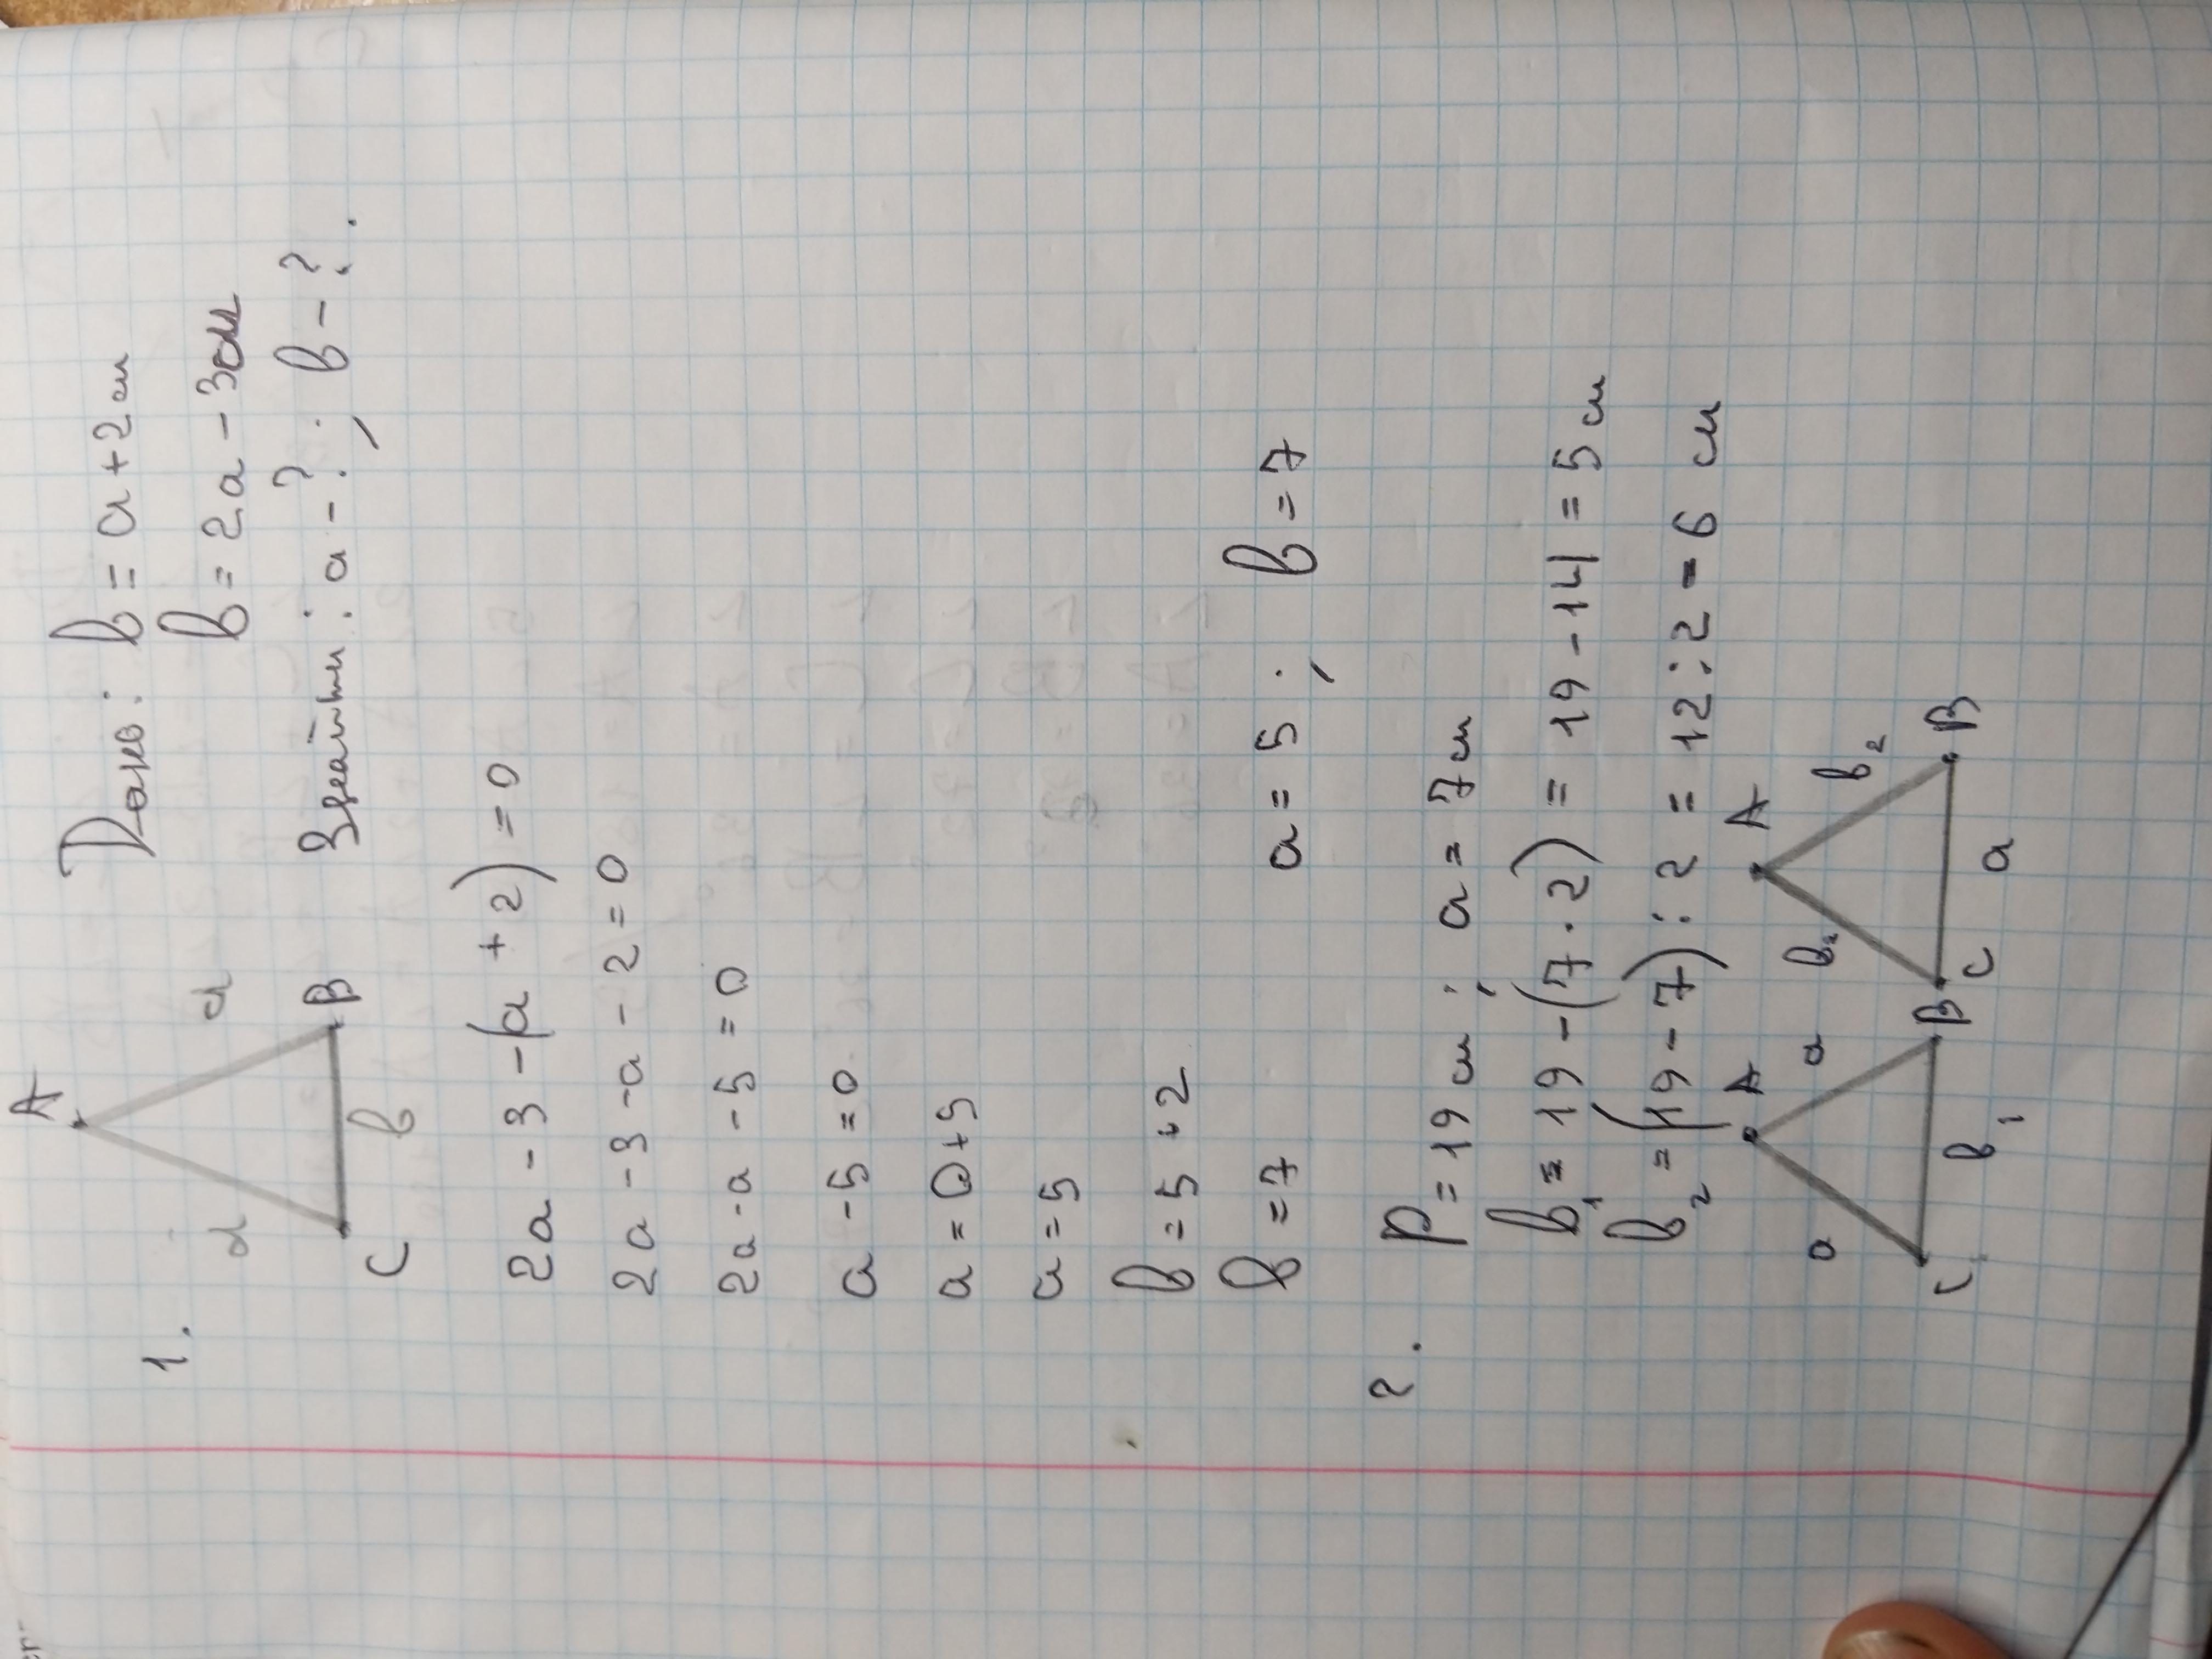 1.
A
a a
C B
в
Дано: в = a + 2 см
в = 2a - 3 см
Знайти: a - ?; в - ?.
2a - 3 - (a + 2) = 0
2a - 3 - a - 2 = 0
2a - a - 5 = 0
a - 5 = 0
a = 0 + 5
a = 5
в = 5 + 2
в = 7
a = 5; в = 7
2. P = 19 см; a = 7 см
в₁ = 19 - (7 · 2) = 19 - 14 = 5 см
в₂ = (19 - 7) : 2 = 12 : 2 = 6 см
A A
a a в₂ в₂
C B C B
в₁ a